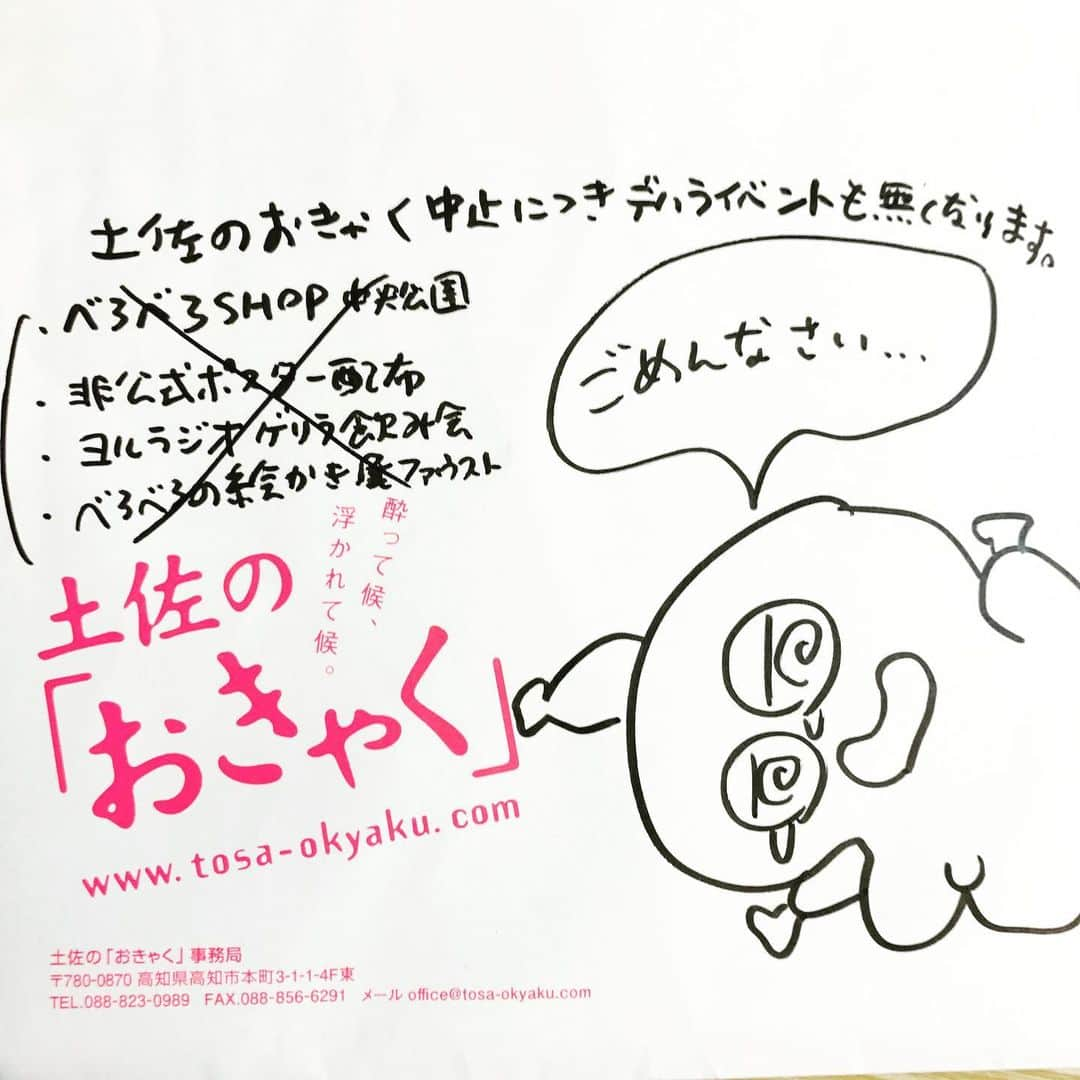 土佐のおきゃく中止につきデハライベントも無くなります。
・べろべろSHOP 中央公園
・非公式ポスター配布
・ヨルラジオゲリラ飲み会
・べろべろの絵かき展ファウスト
ごめんなさい…
酔って候、
浮かれて候。
土佐の
「おきゃく」
www.tosa-okyaku.com
土佐の「おきゃく」事務局
〒780-0870 高知県高知市本町3-1-1-4F東
TEL.088-823-0989 FAX.088-856-6291 メール office@tosa-okyaku.com